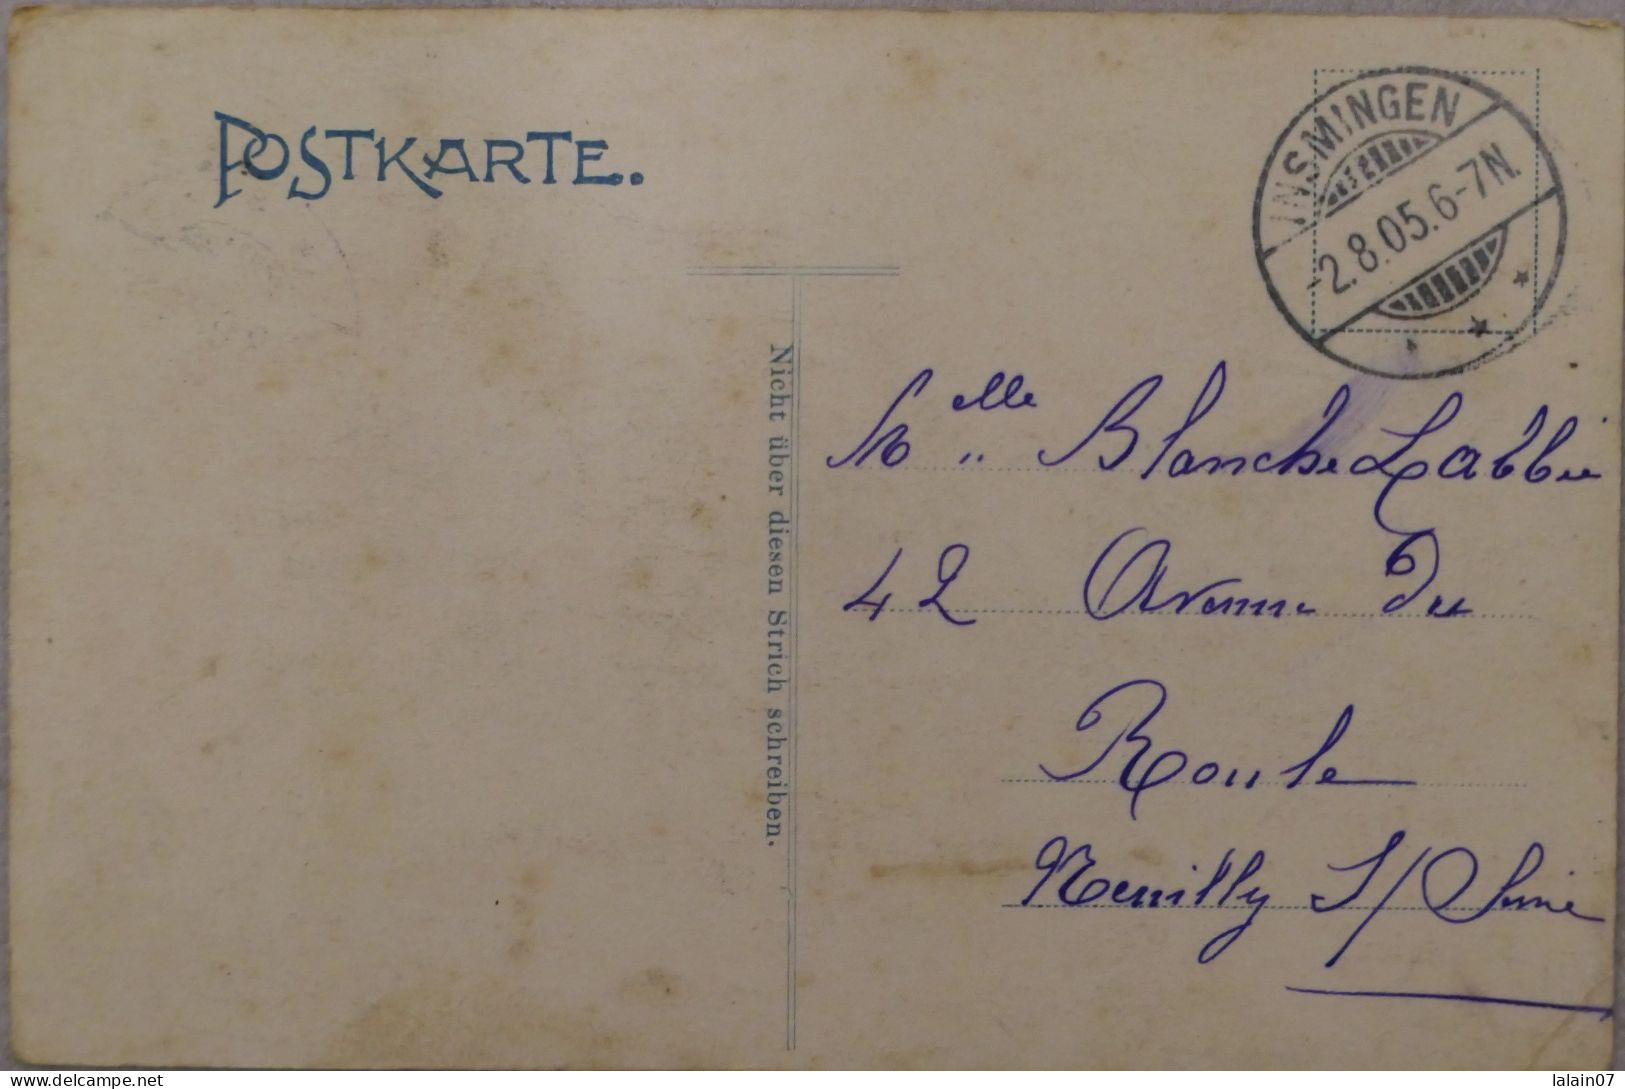 POSTKARTE.
INSMINGEN
-2.8.05.6-7N.
Nicht über diesen Strich schreiben.
Melle Blanche Labbie
42 Avenue du
Roule
Neuilly S/Seine
delcampe.net
lalain07